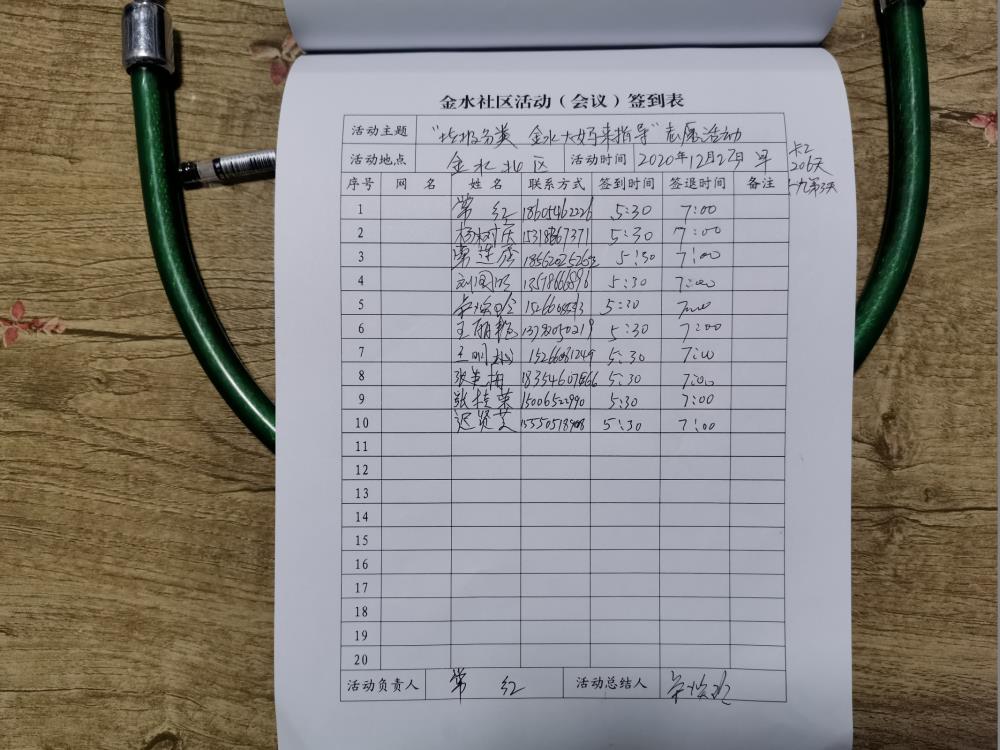 金水社区活动（会议）签到表
活动主题 "垃圾分类 金水大妈来指导"志愿活动
活动地点 金水北区 活动时间 2020年12月27日 早
206天
序号 网 名 姓 名 联系方式 签到时间 签退时间 备注
1 常 红 18605462226 5:30 7:00
2 杨树庆 5:30 7:00
3 常莲秀 5:30 7:00
4 5:30 7:00
5 5:30 7:00
6 王丽艳 13792050219 5:30 7:00
7 15266031249 5:30 7:00
8 张美梅 5:30 7:00
9 张桂荣 15006522990 5:30 7:00
10 迟贤芝 5:30 7:00
11
12
13
14
15
16
17
18
19
20
活动负责人 常 红 活动总结人